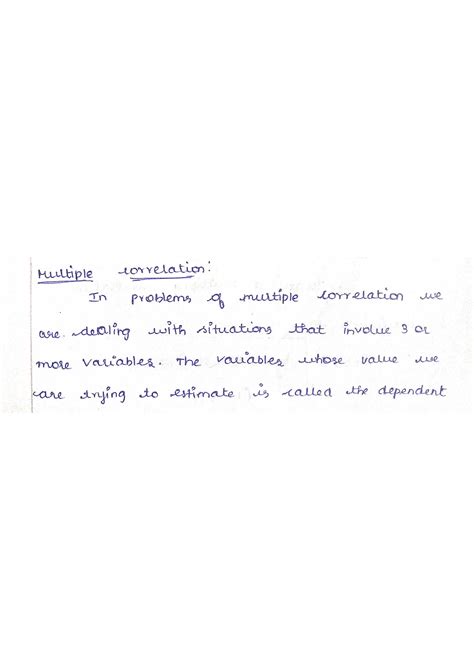 Multiple correlation:
In problems of multiple correlation we
are dealing with situations that involve 3 or
more variables. The variables whose value we
are trying to estimate is called the dependent